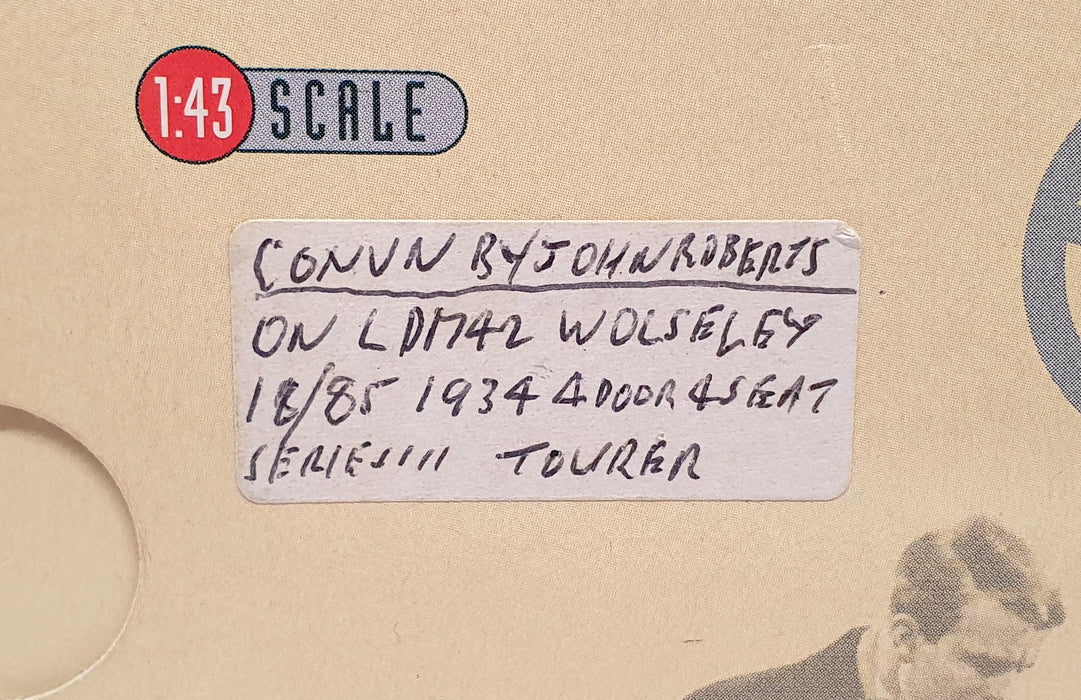 1:43 SCALE
CONVN BY JOHN ROBERTS
ON LDM42 WOLSELEY
18/85 1934 4 DOOR 4 SEAT
SERIES III TOURER